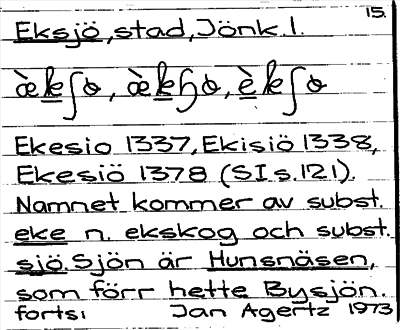 15.
Eksjö, stad, Jönk. l.
Ekesio 1337, Ekisiö 1338,
Ekesiö 1378 (SI s. 121).
Namnet kommer av subst.
eke n. ekskog och subst.
sjö. Sjön är Hunsnäsen,
som förr hette Bysjön.
forts: Jan Agertz 1973